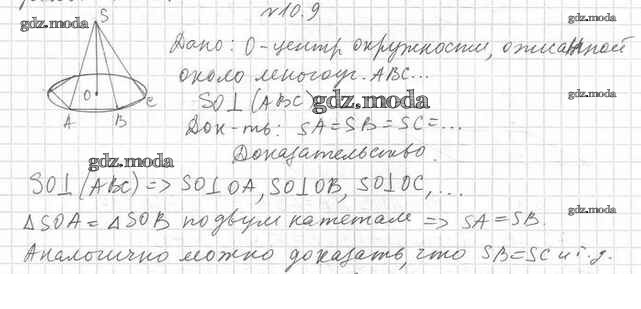 №10.9
gdz.moda
gdz.moda
S
Дано: О-центр окружности, описанной
около многоуг. ABC...
gdz.moda
O
C
A
B
SO⊥(ABC)
gdz.moda
Док-ть: SA=SB=SC=...
Доказательство.
gdz.moda
SO⊥(ABC) => SO⊥OA, SO⊥OB, SO⊥OC, ...
gdz.moda
ΔSOA=ΔSOB по двум катетам => SA=SB.
Аналогично можно доказать, что SB=SC и т.д.